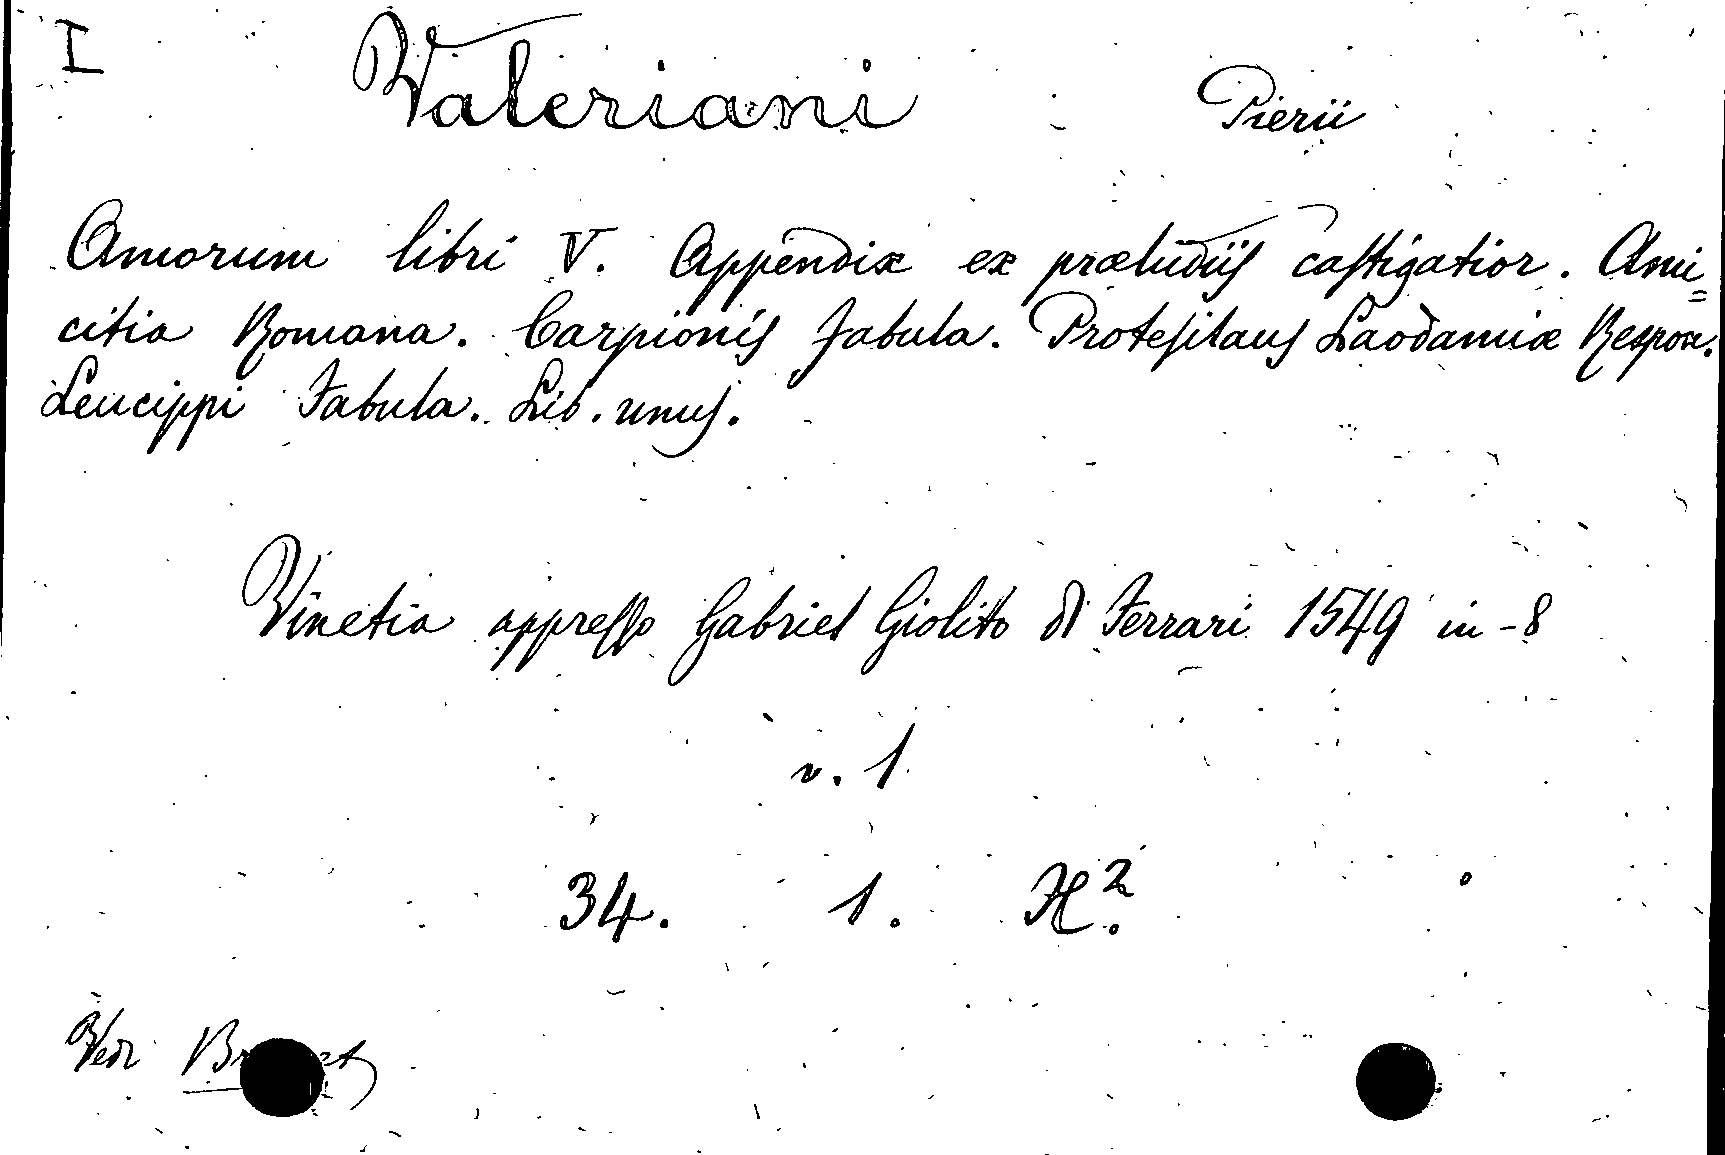 I Valeriani Pierii
Amorum libri V. Appendix ex præludiis castigatior. Ami=
citia Romana. Carpionis fabula. Protesilaus Laodamiæ Respon.
Leucippi Fabula. Lib. unus.
Vinetia appresso Gabriel Giolito di Ferrari 1549 in-8
v. 1
34. 1. H².
Vedi